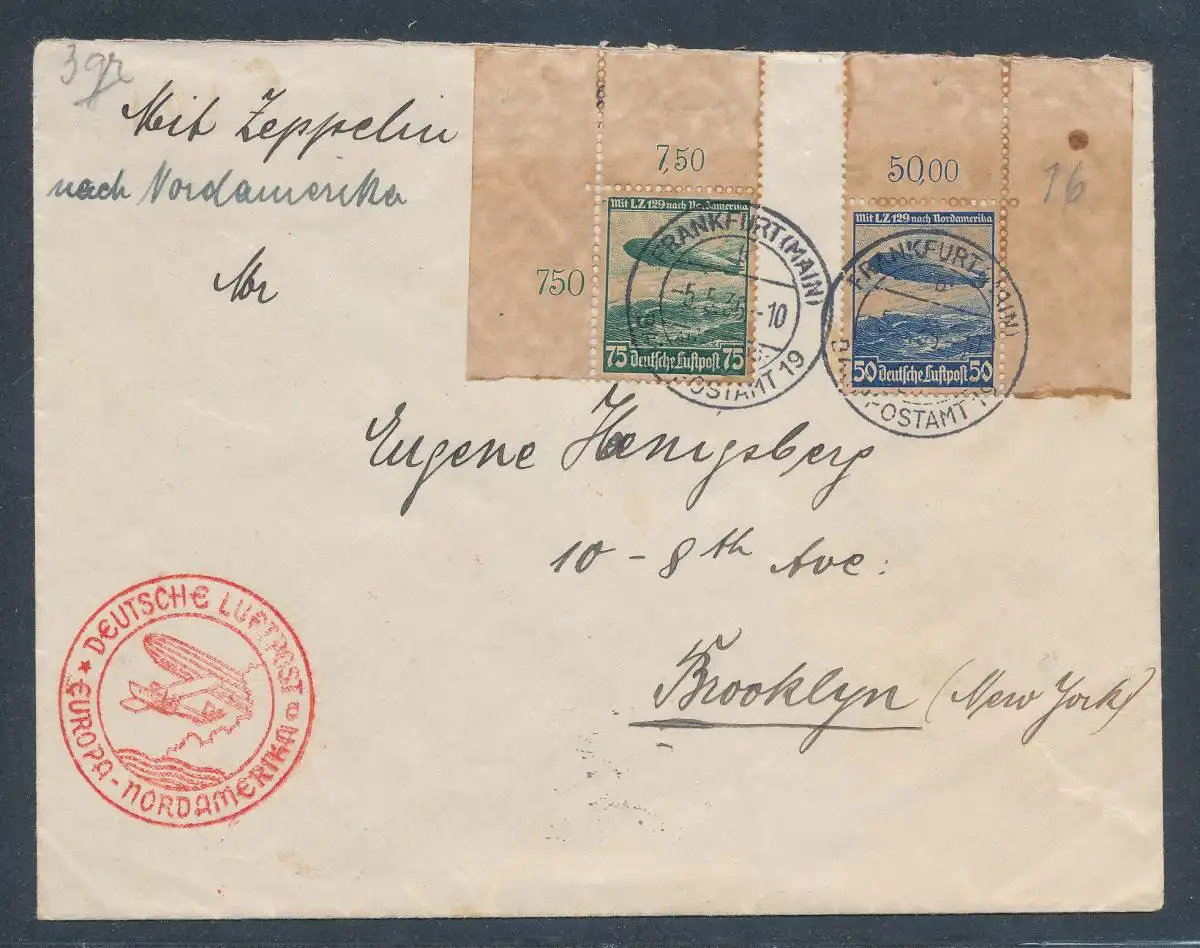 3 gr
Mit Zeppelin
nach Nordamerika
7,50
50,00
16
Mit LZ 129 nach Nordamerika
Mit LZ 129 nach Nordamerika
750
FRANKFURT (MAIN)
-5.5.36.-10
BAHNPOSTAMT 19
FRANKFURT (MAIN)
BAHNPOSTAMT 19
75 Deutsche Luftpost 75
50 Deutsche Luftpost 50
Eugene Hönigsberg
10 - 8th Ave:
Brooklyn (New York)
DEUTSCHE LUFTPOST a
★ EUROPA - NORDAMERIKA